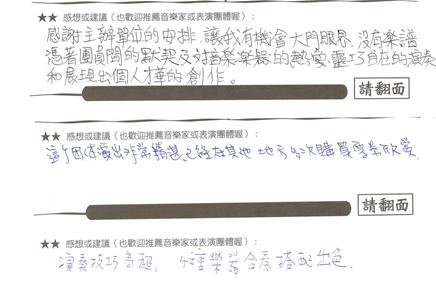 ★★ 感想或建議（也歡迎推薦音樂家或表演團體喔）：
感謝主辦單位的安排，讓我有機會大開眼界，沒有樂譜
憑著團員間的默契及對音樂樂器的熱愛，靈巧自在的演奏
和展現出個人樣的創作。
請翻面
★★ 感想或建議（也歡迎推薦音樂家或表演團體喔）：
這個團体演出非常精湛，已經在其他地方多次購買票券欣賞
請翻面
★★ 感想或建議（也歡迎推薦音樂家或表演團體喔）：
演奏技巧高超，4種樂器合奏搭配出色.